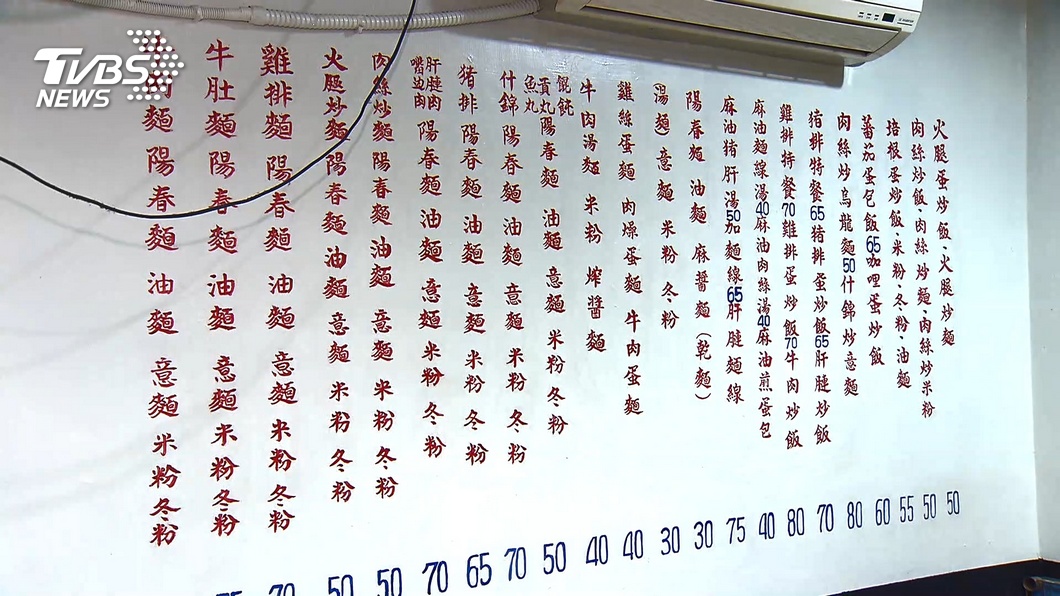 TVBS
NEWS
火腿蛋炒飯·火腿炒麵 50
肉絲炒飯·肉絲炒麵·肉絲炒米粉 50
培根蛋炒飯·米粉·冬粉·油麵 55
蕃茄蛋包飯65咖哩蛋炒飯 60
肉絲炒烏龍麵50什錦炒意麵 80
豬排特餐65豬排蛋炒飯65肝腱炒飯 70
雞排特餐70雞排蛋炒飯70牛肉炒飯 80
麻油麵線湯40麻油肉絲湯40麻油煎蛋包 40
麻油豬肝湯50加麵線65肝腱麵線 75
陽春麵 油麵 麻醬麵(乾麵) 30
(湯麵)意麵 米粉 冬粉 30
雞絲蛋麵 肉燥蛋麵 牛肉蛋麵 40
牛肉湯麵 米粉 榨醬麵 40
餛飩 貢丸 魚丸 陽春麵 油麵 意麵 米粉 冬粉 50
什錦陽春麵 油麵 意麵 米粉 冬粉 70
豬排陽春麵 油麵 意麵 米粉 冬粉 65
肝腱肉 嘴边肉 陽春麵 油麵 意麵 米粉 冬粉 70
肉絲炒麵 陽春麵 油麵 意麵 米粉 冬粉 50
火腿炒麵 陽春麵 油麵 意麵 米粉 冬粉 50
雞排麵 陽春麵 油麵 意麵 米粉 冬粉 70
牛肚麵 陽春麵 油麵 意麵 米粉 冬粉
肉麵 陽春麵 油麵 意麵 米粉 冬粉